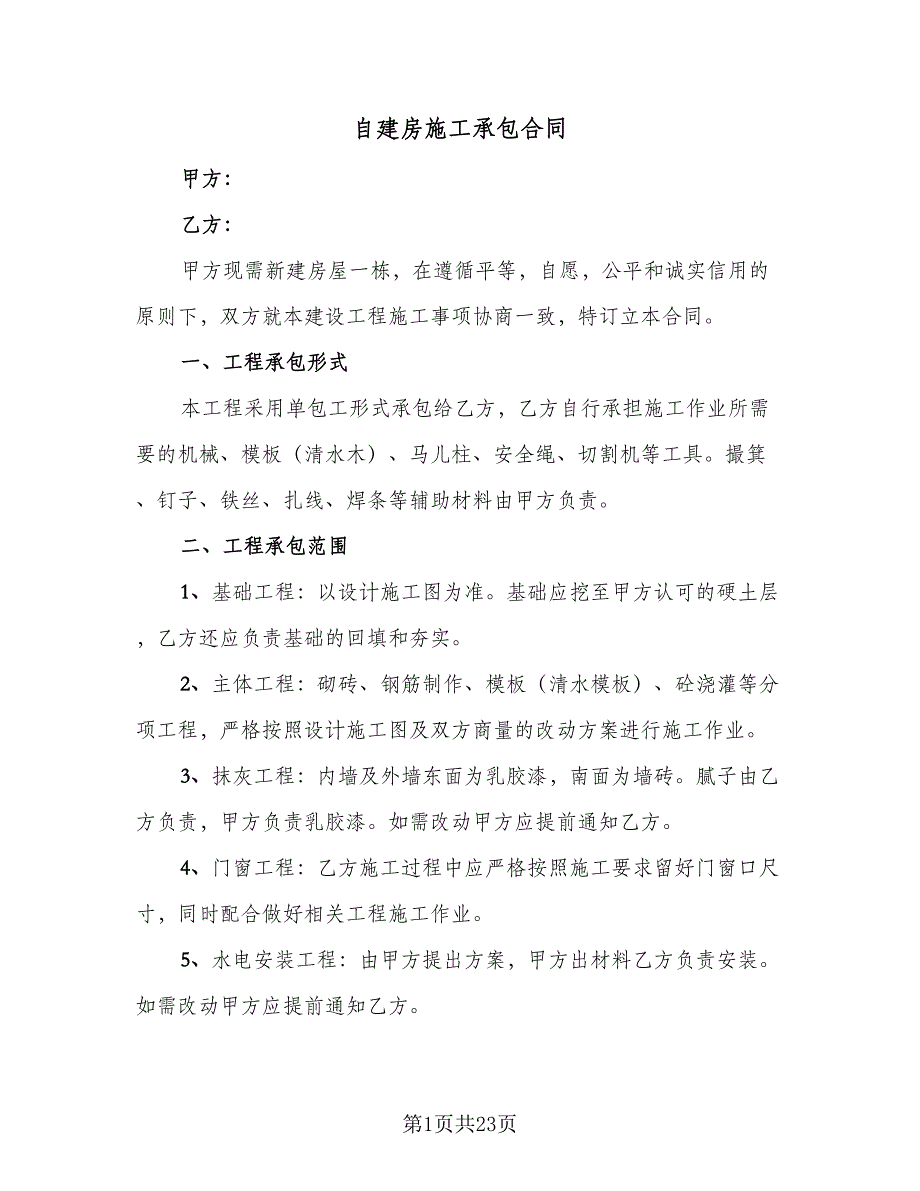 自建房施工承包合同
甲方：
乙方：
甲方现需新建房屋一栋，在遵循平等，自愿，公平和诚实信用的
原则下，双方就本建设工程施工事项协商一致，特订立本合同。
一、工程承包形式
本工程采用单包工形式承包给乙方，乙方自行承担施工作业所需
要的机械、模板（清水木）、马儿柱、安全绳、切割机等工具。撮箕
、钉子、铁丝、扎线、焊条等辅助材料由甲方负责。
二、工程承包范围
1、基础工程：以设计施工图为准。基础应挖至甲方认可的硬土层
，乙方还应负责基础的回填和夯实。
2、主体工程：砌砖、钢筋制作、模板（清水模板）、砼浇灌等分
项工程，严格按照设计施工图及双方商量的改动方案进行施工作业。
3、抹灰工程：内墙及外墙东面为乳胶漆，南面为墙砖。腻子由乙
方负责，甲方负责乳胶漆。如需改动甲方应提前通知乙方。
4、门窗工程：乙方施工过程中应严格按照施工要求留好门窗口尺
寸，同时配合做好相关工程施工作业。
5、水电安装工程：由甲方提出方案，甲方出材料乙方负责安装。
如需改动甲方应提前通知乙方。
第1页共23页